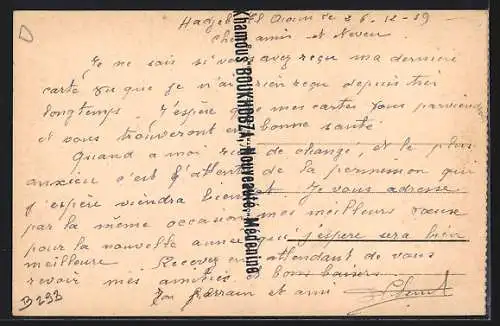 Hadjeb El Aioun le 26-12-39
Cher ami et Neveu
Je ne sais si vous avez reçu ma dernière
carte vu que je n'ai rien reçu depuis très
longtemps. J'espère que mes cartes vous parviendront
et vous trouveront en bonne santé.
Quand a moi rien de changé, et le plus
anxieux c'est l'attente de la permission qui
j'espère viendra bientôt. Je vous adresse
par la même occasion mes meilleurs voeux
pour la nouvelle année que j'espère sera bien
meilleure. Recevez en attendant de vous
revoir mes amitiés. bons baisers.
Ton Parrain et ami
Khamous BOUKHOBZA, Nouveauté - Médenine
D
B293